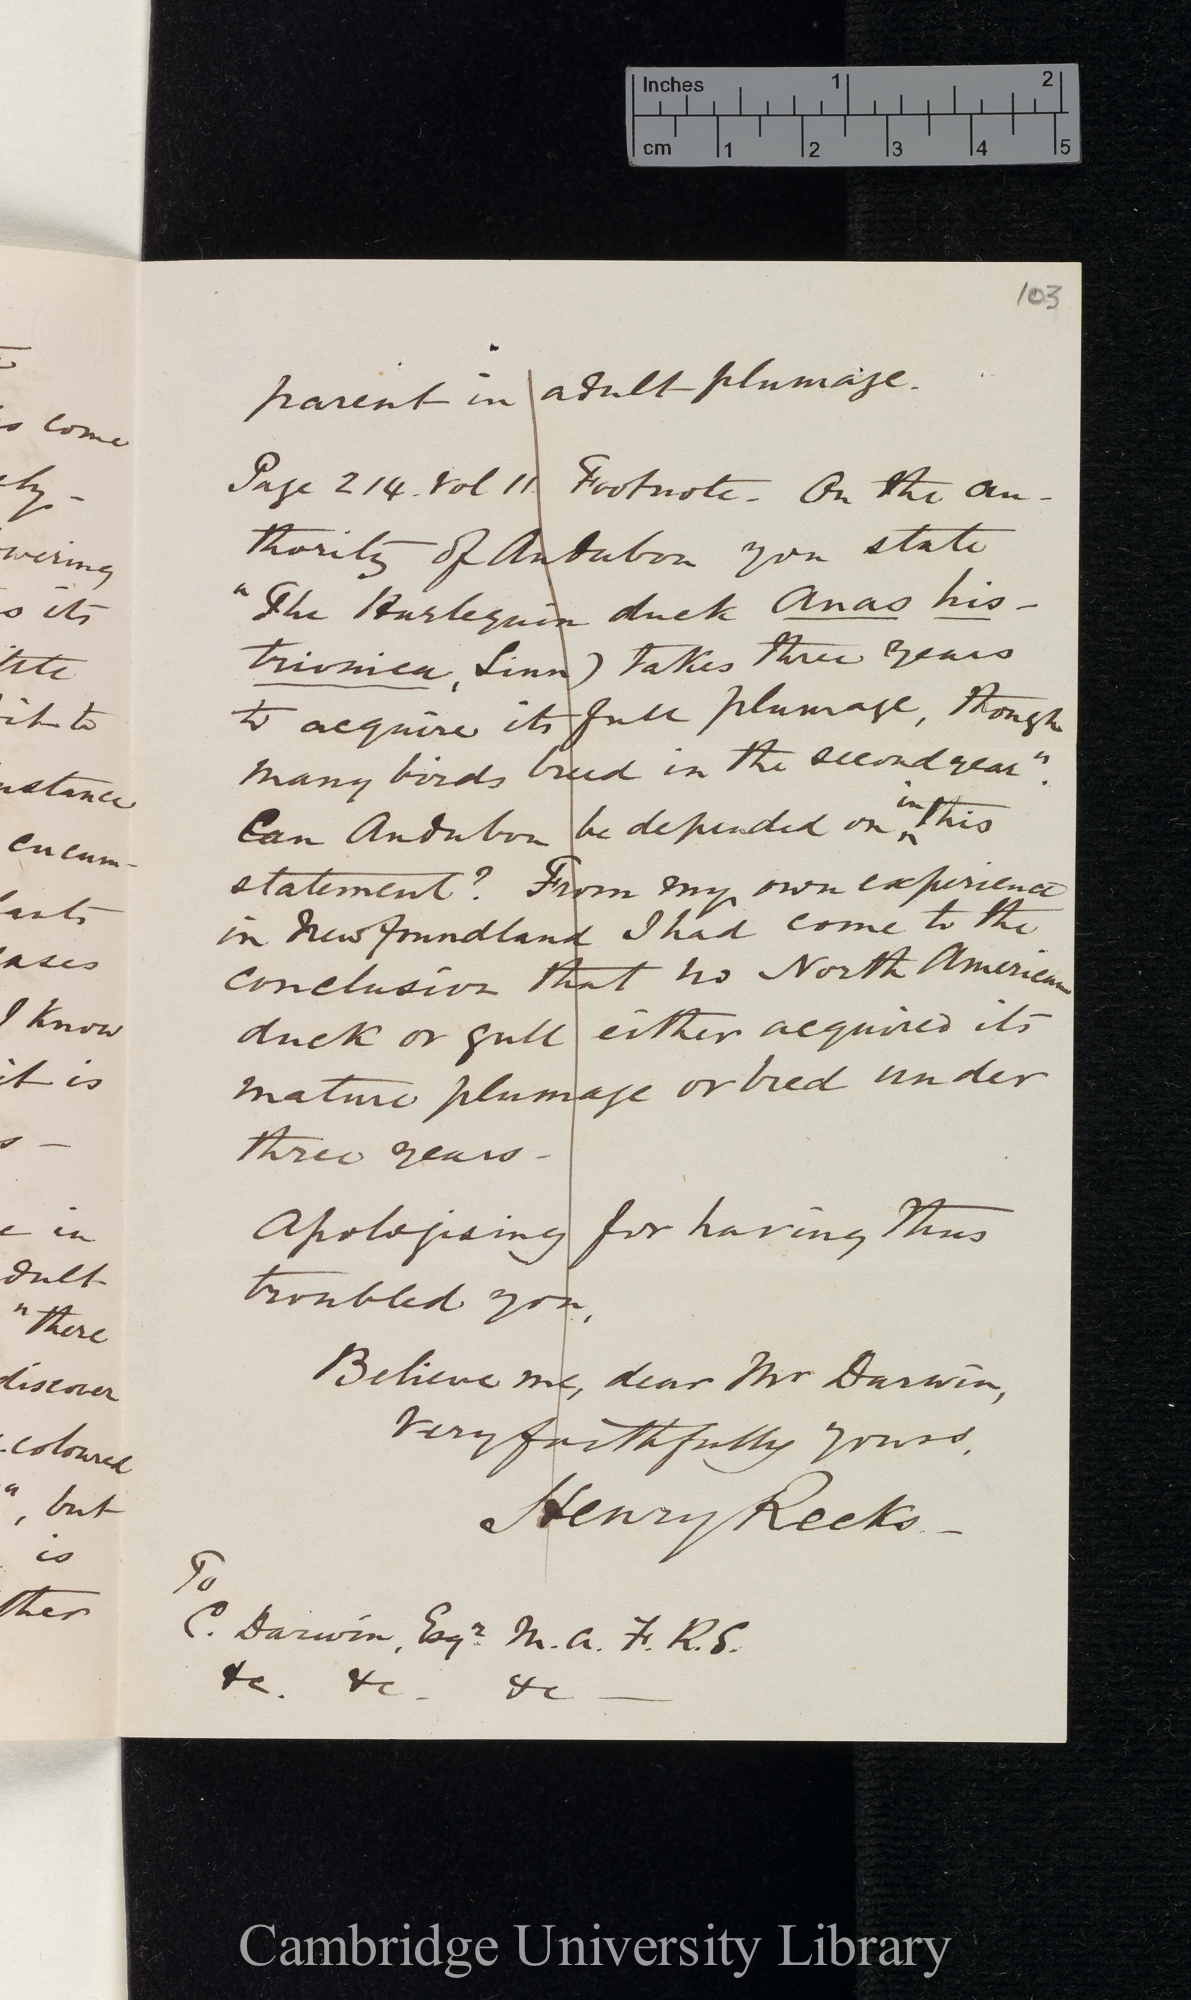 Inches 1 2
cm 1 2 3 4 5
103
s come
wering
s its
it to
nstance
cucum-
ases
I know
it is
s —
e in
dult
"there
discover
-coloured
", but
is
ther
parent in adult plumage.
Page 214. Vol 11 Footnote - On the au-
thority of Audubon you state
"The Harlequin duck Anas his-
trionica, Linn) takes three years
to acquire its full plumage, though
many birds breed in the second year".
Can Audubon be depended on in this
statement? From my own experience
in Newfoundland I had come to the
conclusion that no North American
duck or gull either acquired its
mature plumage or bred under
three years -
Apologising for having thus
troubled you,
Believe me, dear Mr Darwin,
Very faithfully yours,
Henry Reeks —
To
C. Darwin, Esqr. M.A. F.R.S.
&c. &c - &c —
Cambridge University Library